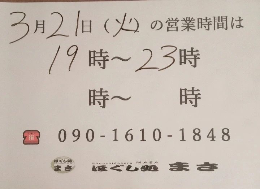 3月21日(火)の営業時間は
19時～23時
時～　時
☎ 090-1610-1848
ほぐし処 まさ ほぐし処 まさ